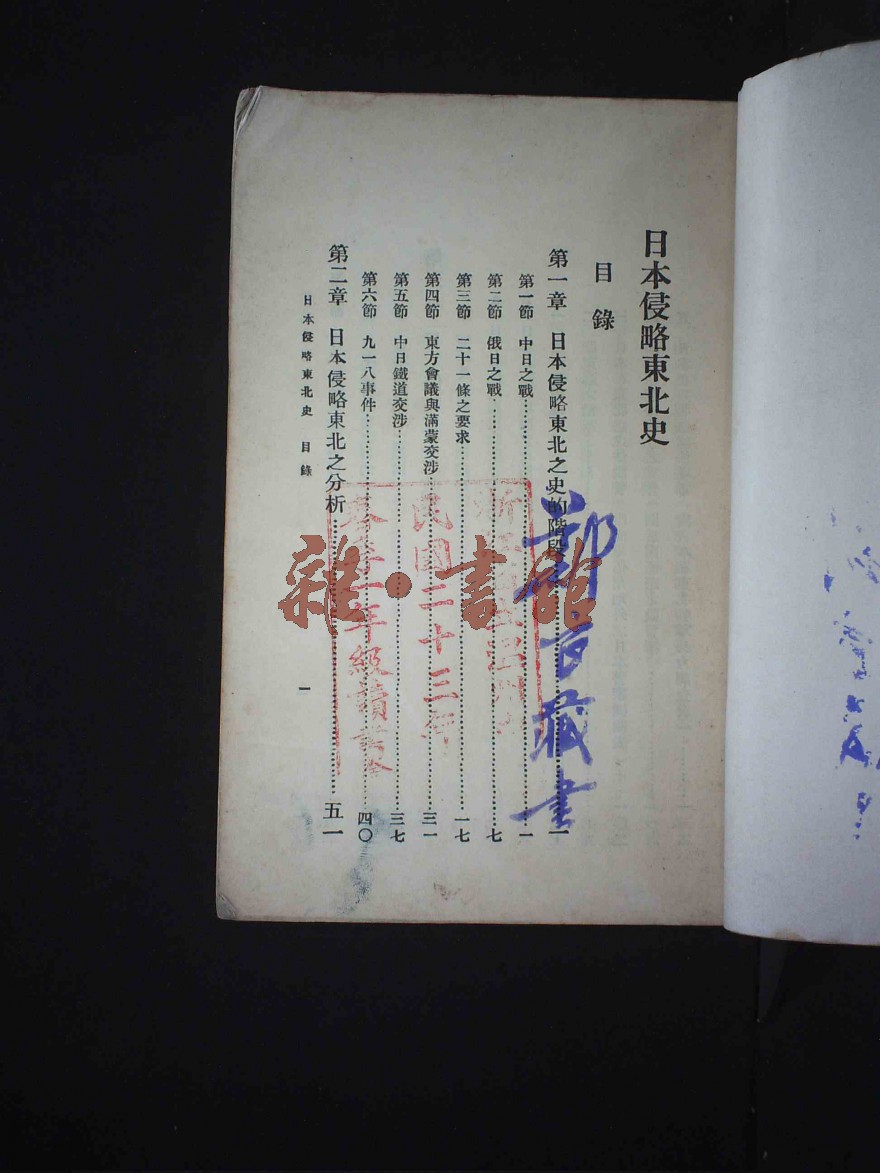 日本侵略東北史
目錄
第一章 日本侵略東北之史的階段……一
第一節 中日之戰……一
第二節 俄日之戰……七
第三節 二十一條之要求……一七
第四節 東方會議與滿蒙交涉……三一
第五節 中日鐵道交涉……三七
第六節 九一八事件……四〇
第二章 日本侵略東北之分析……五一
日本侵略東北史 目錄
一
藏書
民國二十三年
年級讀書會
雜·書館